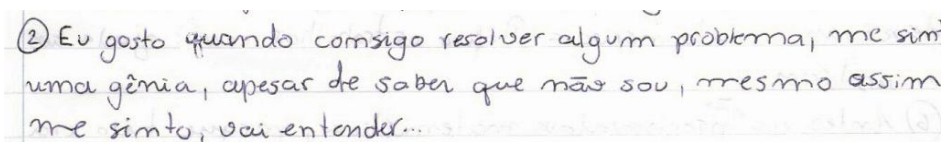 ② Eu gosto quando comsigo resolver algum problema, me sim
uma gênia, apesar de saber que não sou, mesmo assim
me simto, vai entender...